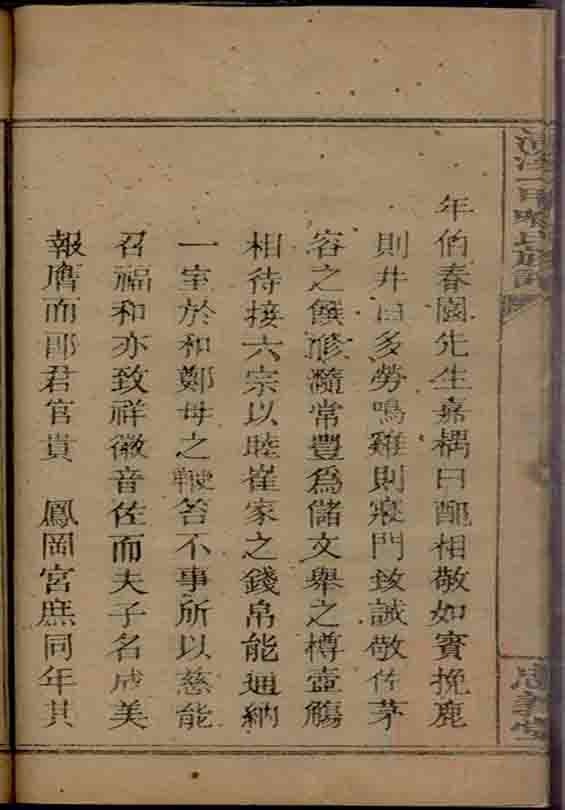 年伯春園先生嘉耦曰配相敬如賓挽鹿
則井臼多勞鳴雞則寢門致誠敬佐茅
容之饌脩瀡常豐爲儲文舉之樽壺觴
相待接六宗以睦崔家之錢帛能通納
一室於和鄭母之鞭笞不事所以慈能
召福和亦致祥徽音佐而夫子名成美
報膺而郎君官貴　鳳岡宮庶同年其